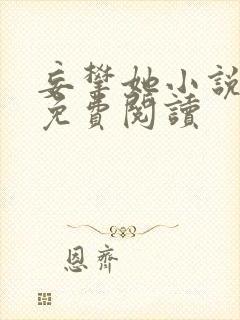 妄攀她小說
免費閱讀
恩齊